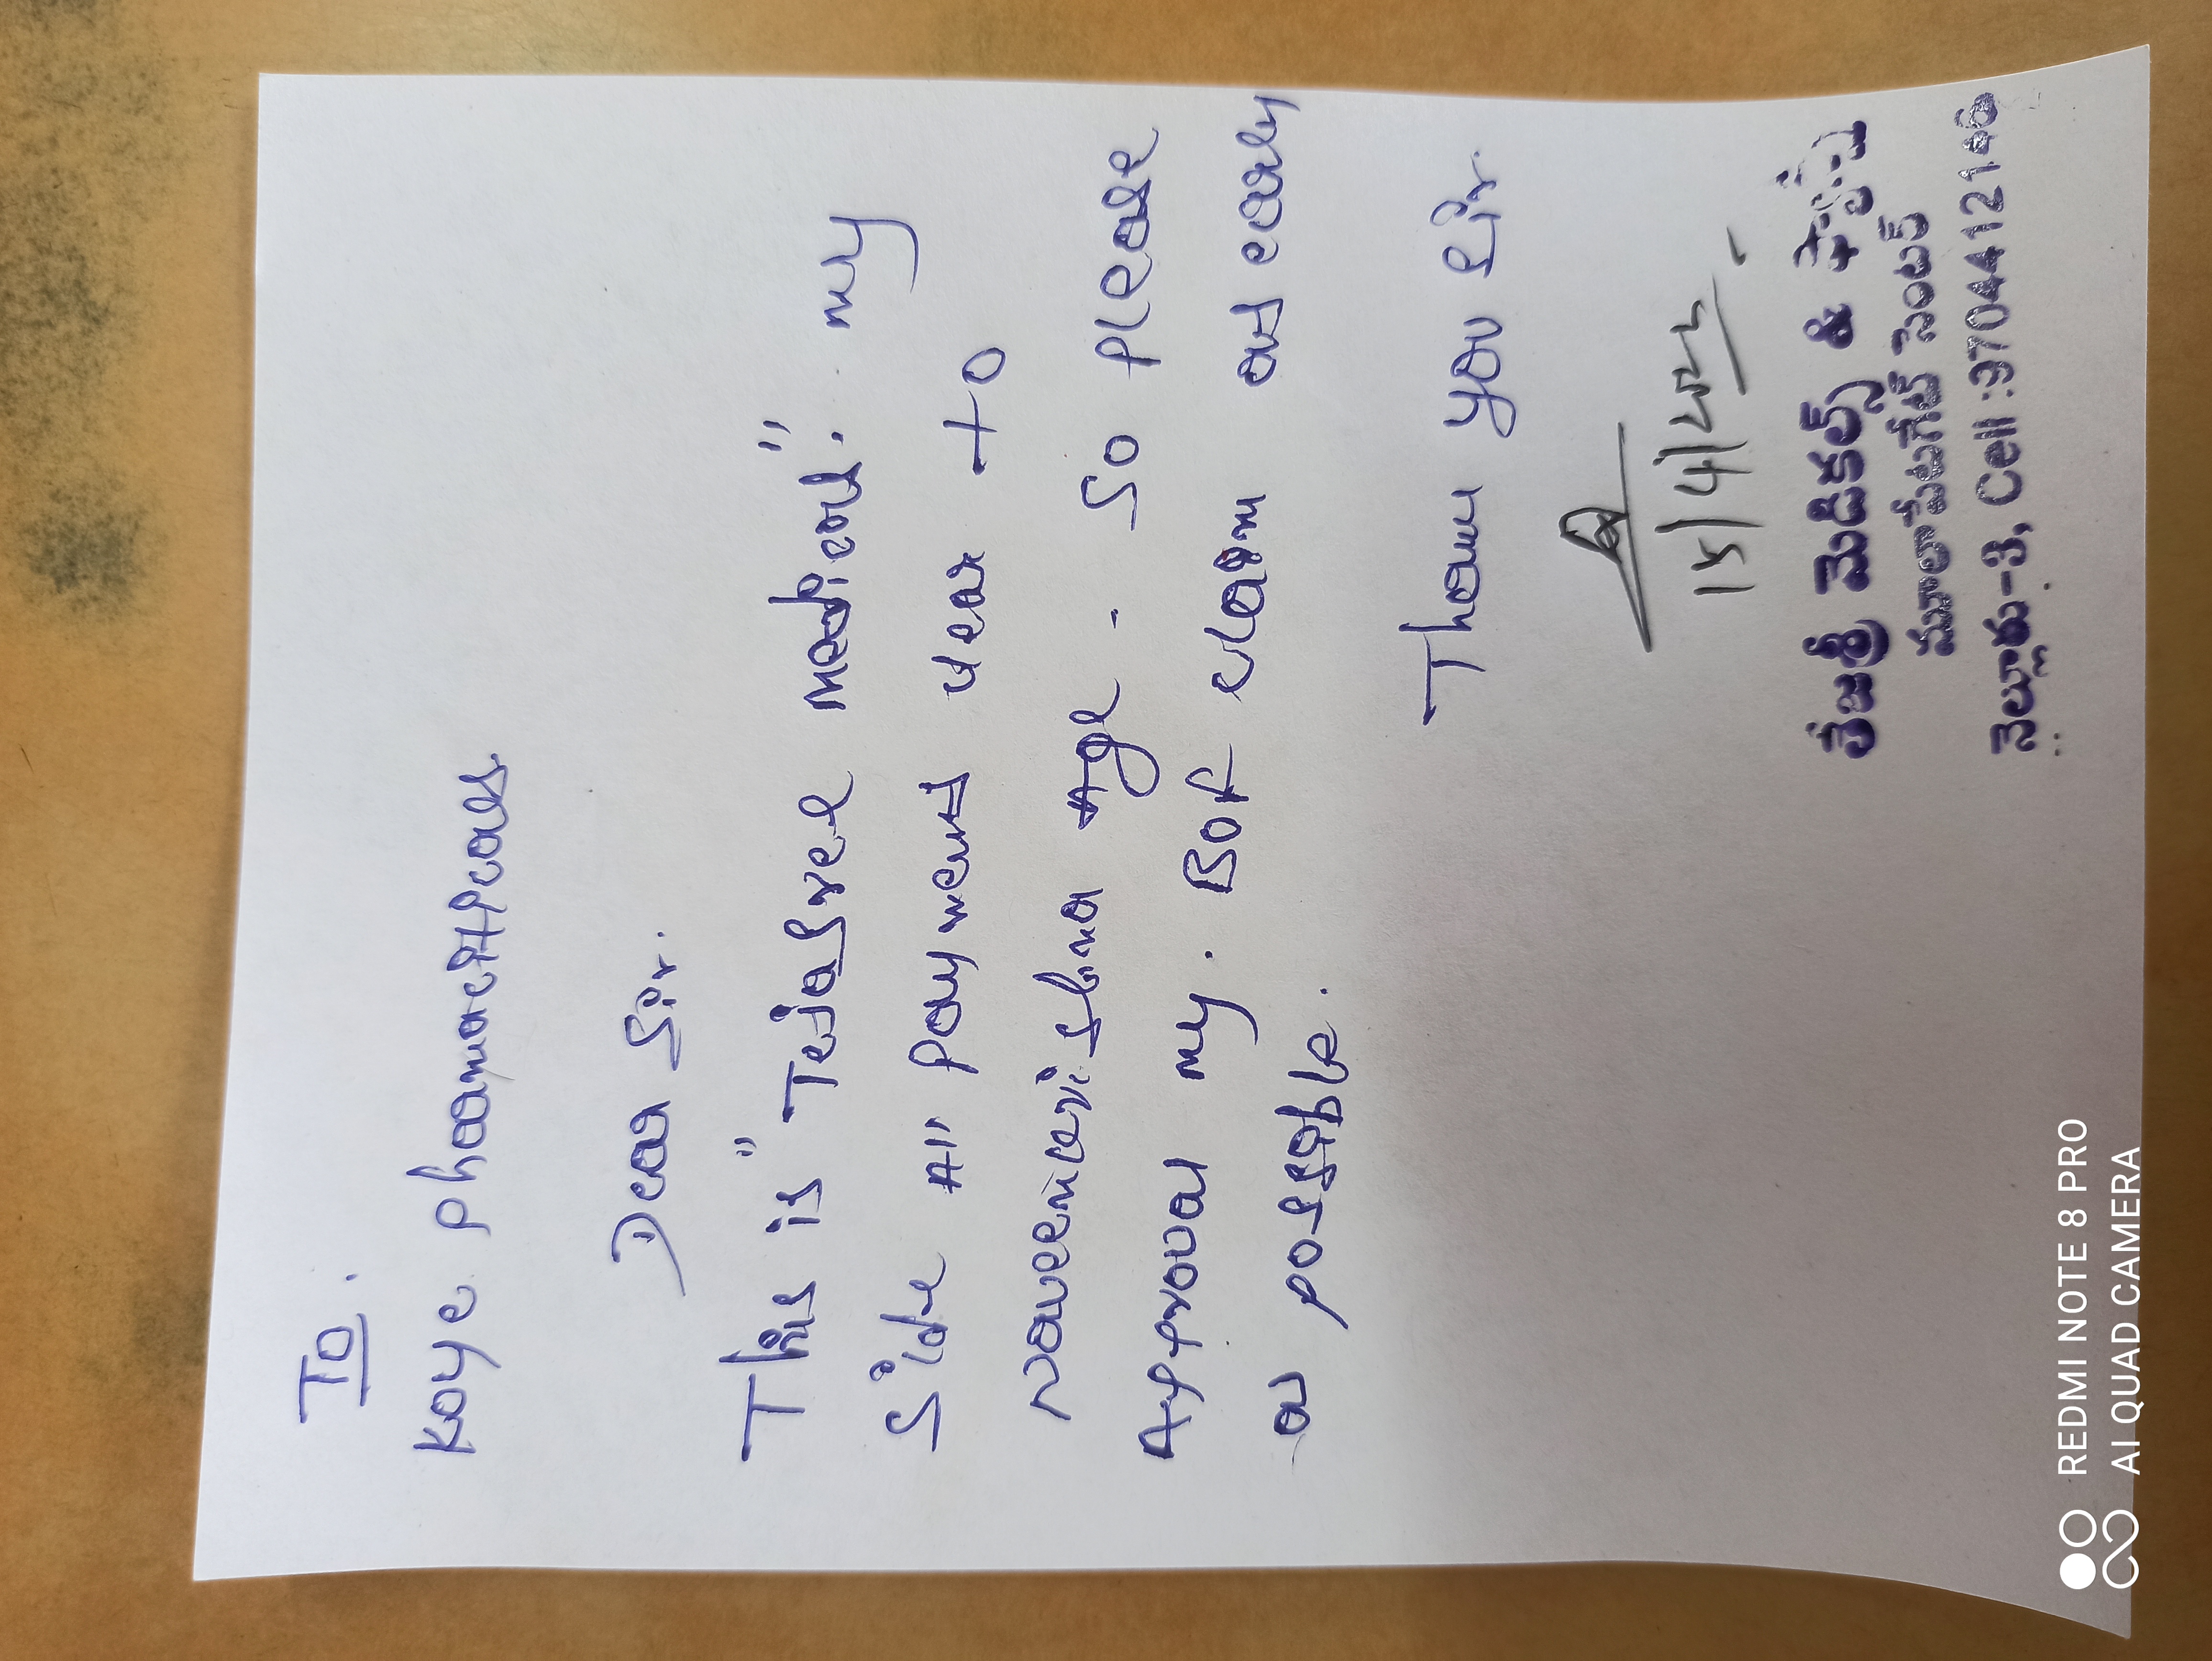 To.
Koye phaamaciticals.
Dear Sir.
This is "Tejasree medical". my
Side All payment clear to
naveencrishna Age - So please
Approval my. BOF claim ast early
as possible.
Thank you Sir.
15/4/25
తేజశ్రీ మెడికల్స్ & ఫ్యాన్సీ
మూలాపేటగేట్ సెంటర్
నెల్లూరు-3, Cell :9704412146
REDMI NOTE 8 PRO
AI QUAD CAMERA